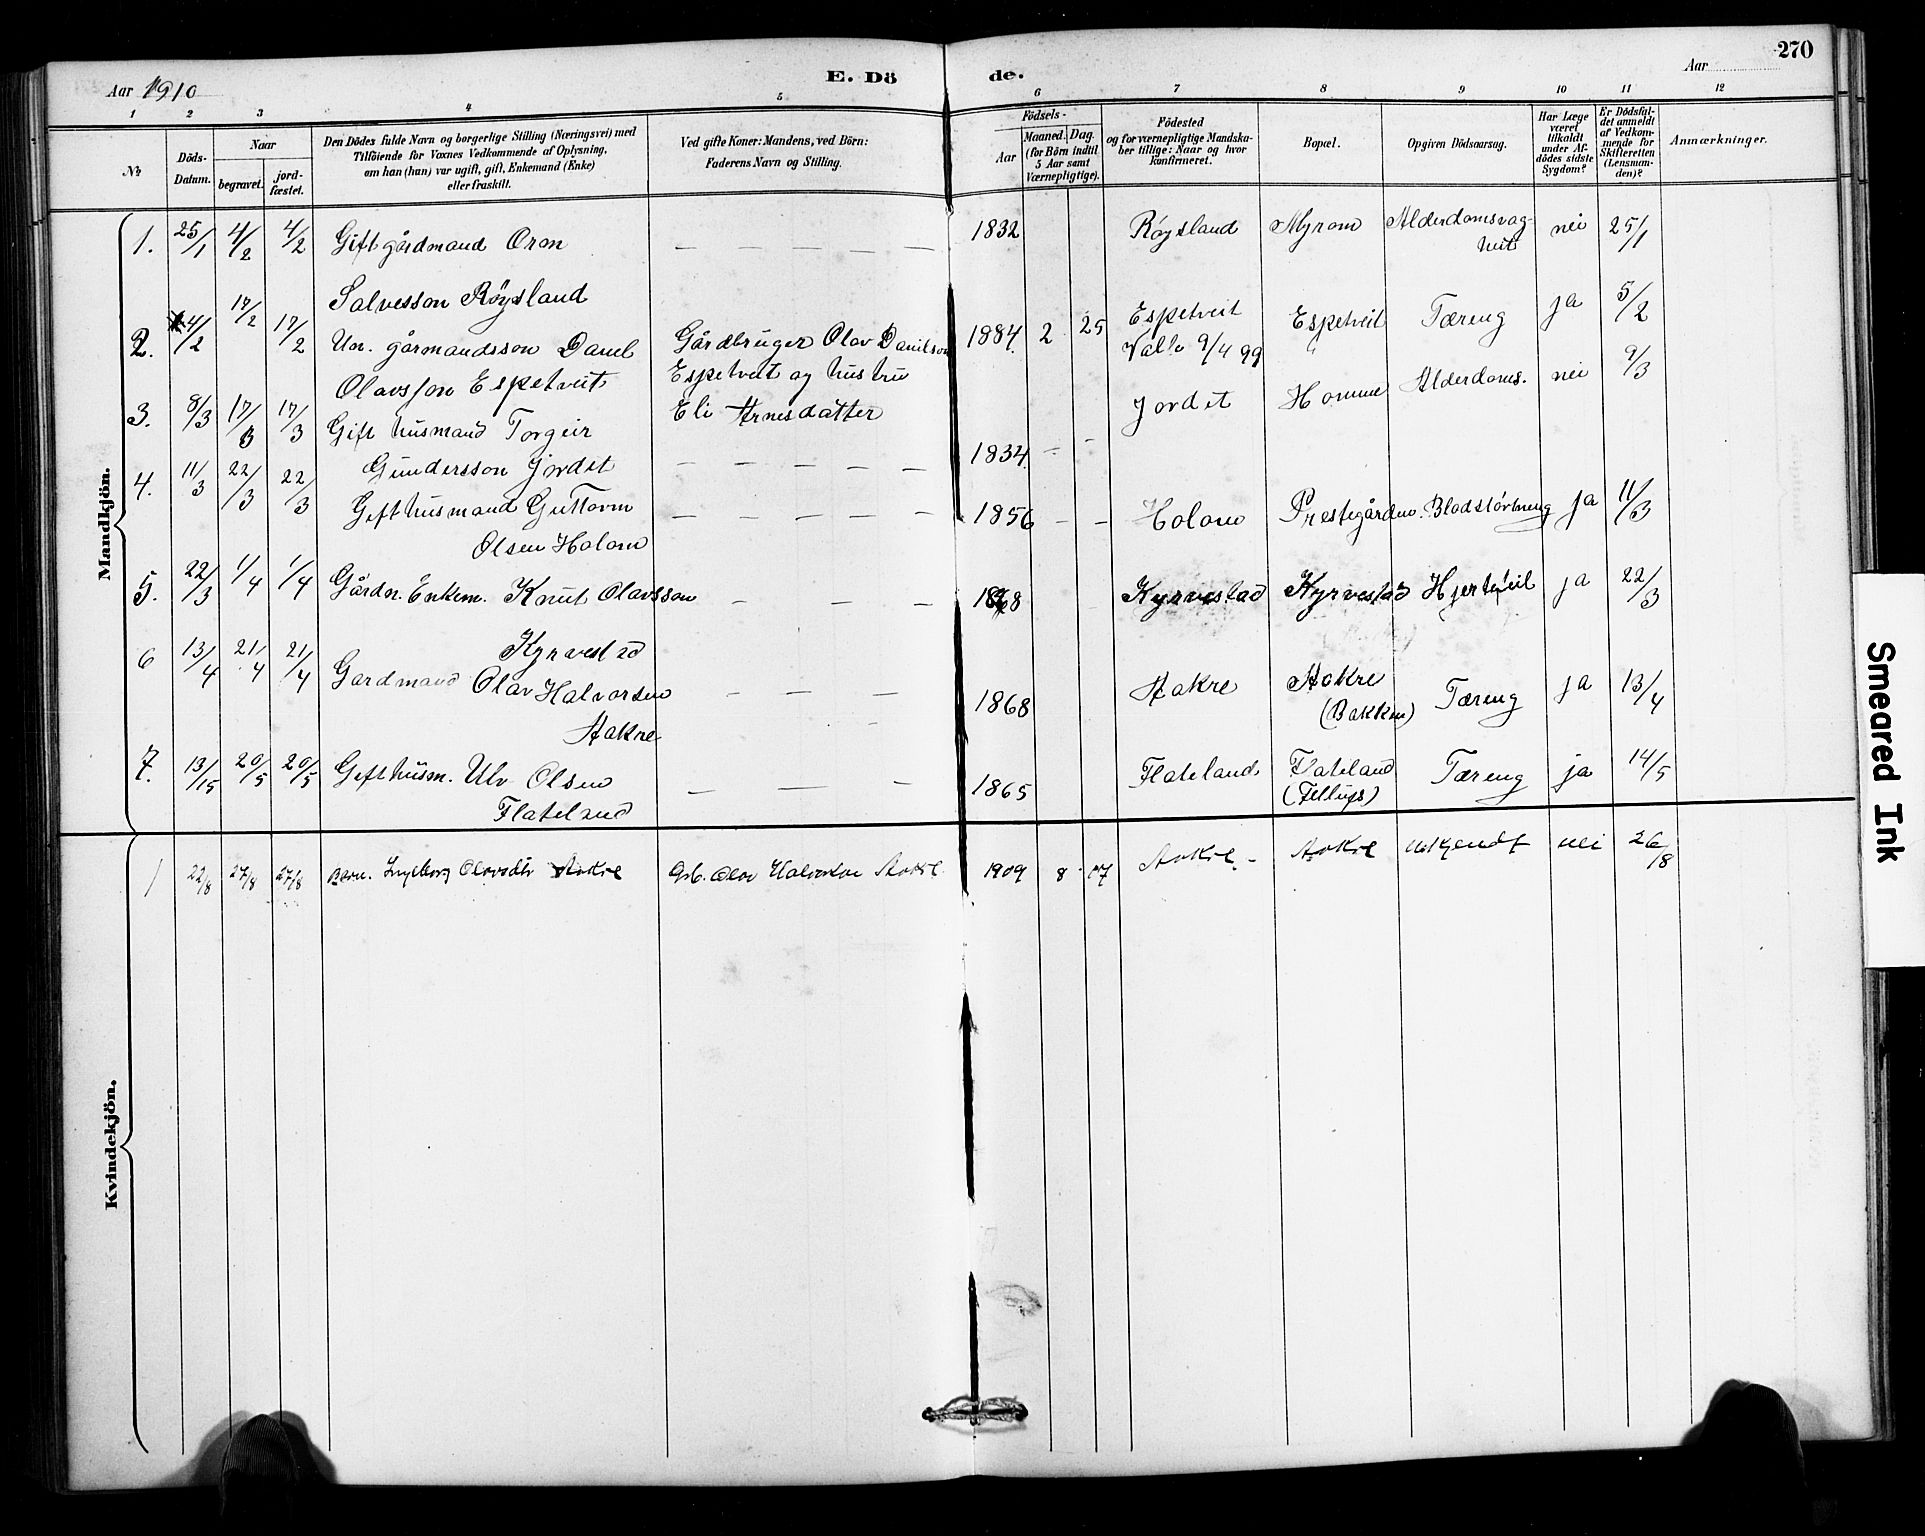 270
Aar 1910
E. Dö de.
Aar
1 2 3 4 5 6 7 8 9 10 11 12
No
Döds-Datum.
Naar
begravet.
jord-fæstet.
Den Dödes fulde Navn og borgerlige Stilling (Næringsvei) med
Tilföiende for Voxnes Vedkommende af Oplysning,
om han (hun) var ugift, gift, Enkemand (Enke)
eller fraskilt.
Ved gifte Koner: Mandens, ved Börn:
Faderens Navn og Stilling.
Födsels-
Aar
Maaned. Dag.
(for Börn indtil
5 Aar samt
Værnepligtige).
Födested
og for værnepligtige Mandska-
ber tillige: Naar og hvor
konfirmeret.
Bopæl.
Opgiven Dödsaarsag.
Har Læge
været
tilkaldt
under Af-
dödes sidste
Sygdom?
Er Dödsfal-
det anmeldt
af Vedkom-
mende for
Skifteretten
(Lensman-
den)?
Anmærkninger.
Mandkjön.
1. 25/1 4/2 4/2 Gift gårdmand Orm — — — — — 1832 Røysland Myrom Alderdomsvag- nei 25/1
heit
Salvesson Røysland
2. 4/2 17/2 17/2 Un. gårmandsson Daniel Gårdbruger Olav Danilson 1884. 2 25 Espetveit Espetveit Tæreng ja 5/2
Valle 9/4 99
Olavsson Espetveit Espetveit og hustru
Eli Arnesdatter
3. 8/3 17/3 17/3 Gift husmand Torgeir Jordet Homme Alderdoms. nei 9/3
Gundersson Jordet — — — — — 1834 - -
4. 11/3 22/3 22/3 Gift husmand Guttorm — — — — — 1856 - - Holom Prestegården. Blodstørtneng ja 11/3
Olsen Holom
5. 22/3 1/4 1/4 Gårdm. Enkem. Knut Olavsson — — — 1868 Kyrvestad Kyrvestad Hjertefeil ja 22/3
Kyrvestad
6 13/4 21/4 21/4 Gardmand Olav Halvorsen — — — 1868 Aakre Aakre Tæreng ja 13/4
(Bakken)
Aakre
7. 13/15 20/5 20/5 Gift husm. Ulv Olsen — — — 1865 Flateland Flateland Tæreng ja 14/5
Flateland
Kvindekjön.
1 22/8 27/8 27/8 Barn. Ingeborg Olavsdtr Aakre Grb. Olav Halvorson Aakre 1909 8 17 Aakre - Aakre Ukjendt nei 26/8
Smeared Ink